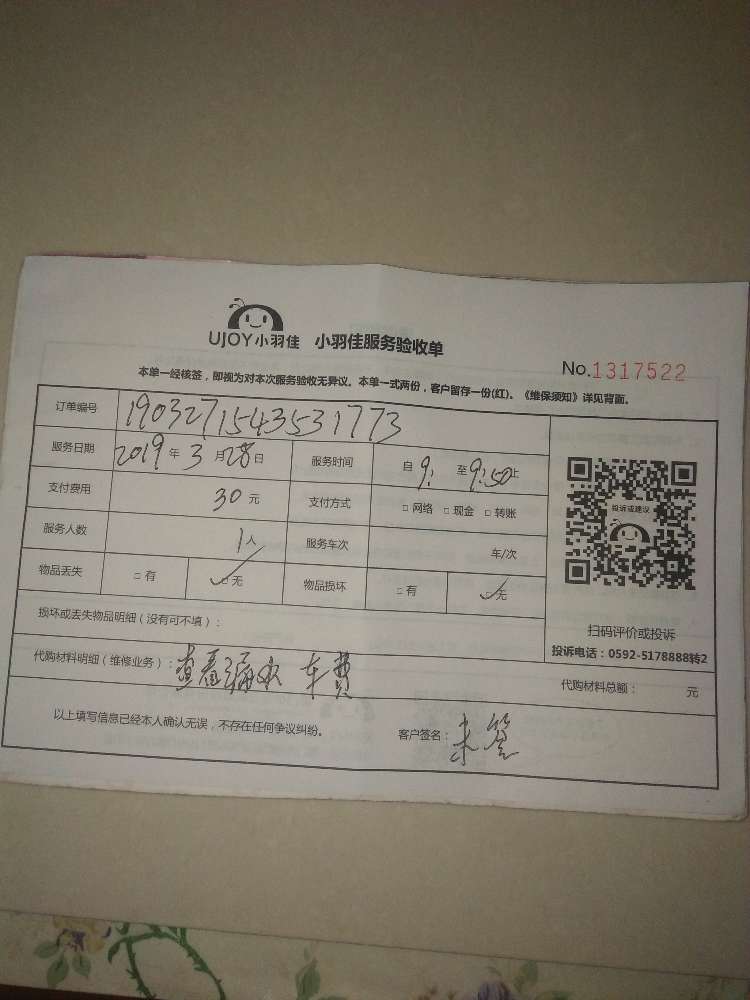 UJOY小羽佳 小羽佳服务验收单
No.1317522
本单一经核签，即视为对本次服务验收无异议。本单一式两份，客户留存一份(红)。《维保须知》详见背面。
订单编号 1903271543531773
服务日期 2019年3月28日 服务时间 自9: 至9:50止
支付费用 30元 支付方式 □网络 □现金 □转账
服务人数 1人 服务车次 车/次
物品丢失 □有 ✓□无 物品损坏 □有 ✓□无
投诉或建议
扫码评价或投诉
投诉电话：0592-5178888转2
损坏或丢失物品明细（没有可不填）：
代购材料明细（维修业务）：查看漏水 车费 代购材料总额： 元
以上填写信息已经本人确认无误，不存在任何争议纠纷。 客户签名：未签